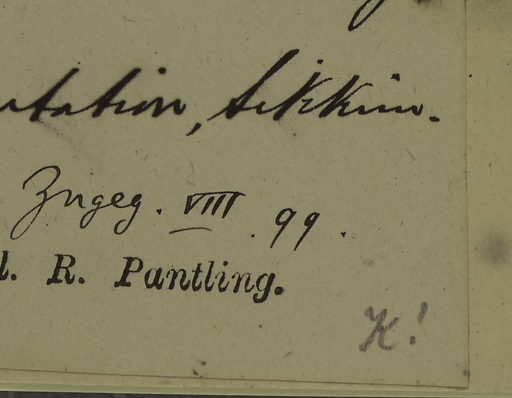 tation, Sikkim.
Zugeg. VIII. 99.
l. R. Pantling.
K!